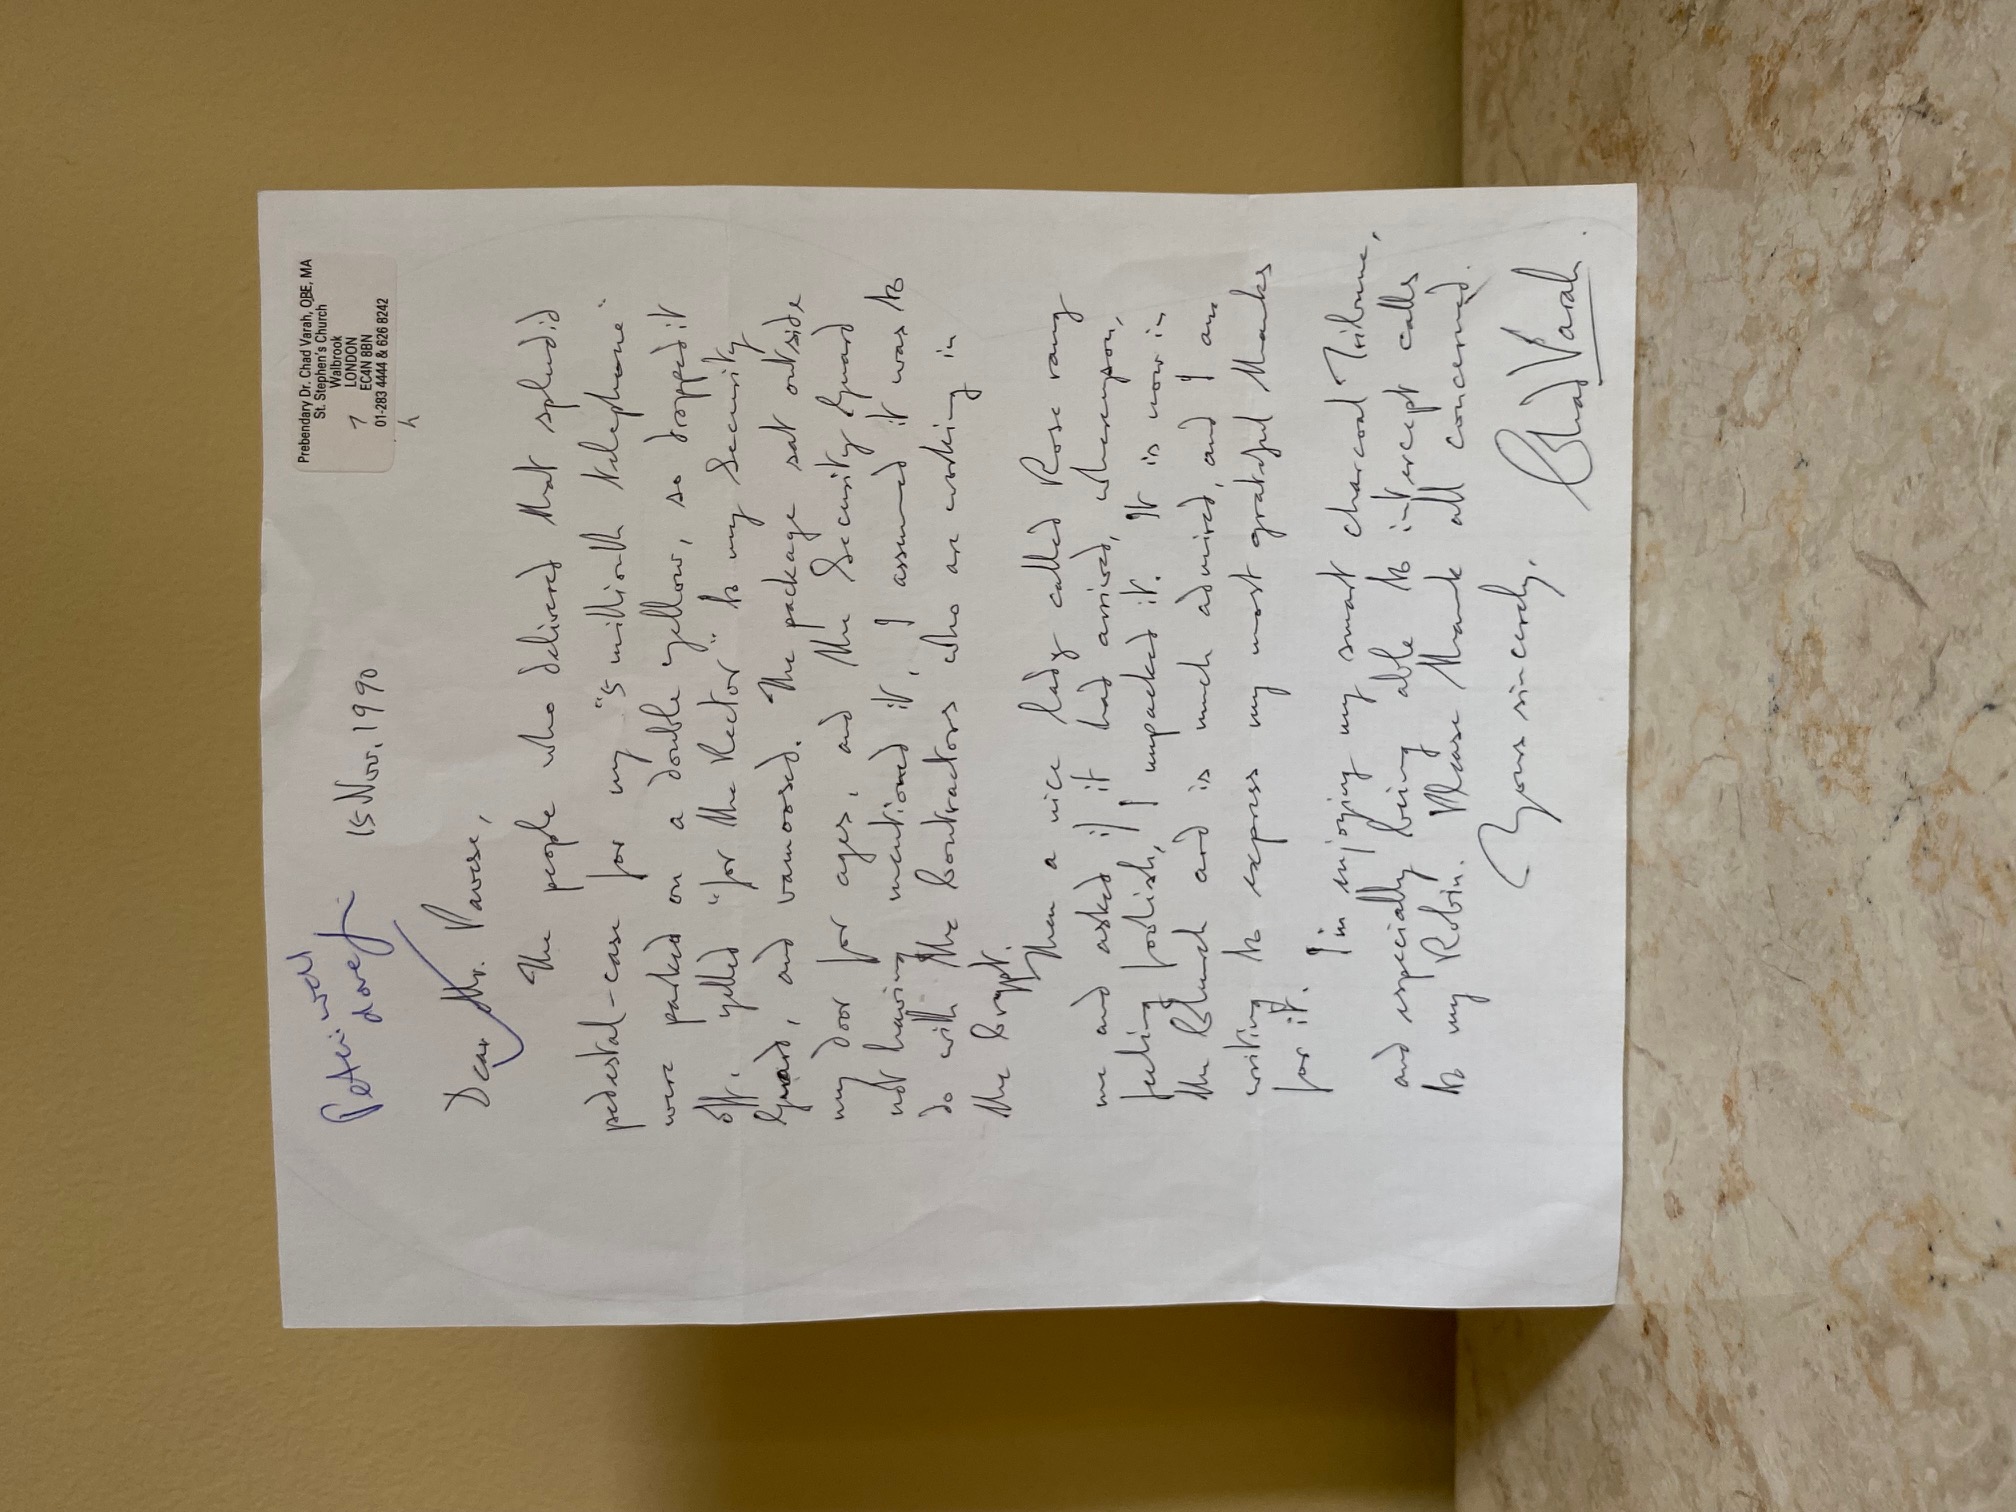 Prebendary Dr. Chad Varah, OBE, MA
St. Stephen's Church
Walbrook
LONDON
EC4N 8BN
01-283 4444 & 626 8242
Peter: well
15 Nov. 1990
Dear Mr.
The people who delivered that splendid
pedestal-case for my "5 millionth telephone"
were parked on a double yellow, so dropped it
off, yelled "for the Rector" to my Security
Guard, and vamoosed. The package sat outside
my door for ages, and the Security Guard
not having mentioned it, I assumed it was to
do with the Contractors who are working in
the Crypt.
Then a nice lady called Rose rang
me and asked if it had arrived, whereupon,
feeling foolish, I unpacked it. It is now in
the Church and is much admired, and I am
writing to express my most grateful thanks
for it.
I'm enjoying my smart charcoal Tribune,
and especially being able to intercept calls
to my Robin. Please thank all concerned.
Yours sincerely,
Chad Varah.